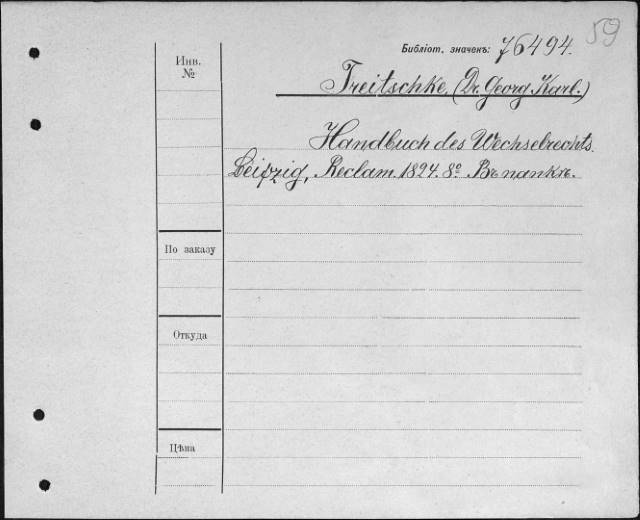 59
Библіот. значекъ: 76494.
Инв.
№
Treitschke, (Dr. Georg Karl.)
Handbuch des Wechselrechts.
Leipzig, Reclam. 1824. 8º. Въ папкѣ.
По заказу
Откуда
Цѣна